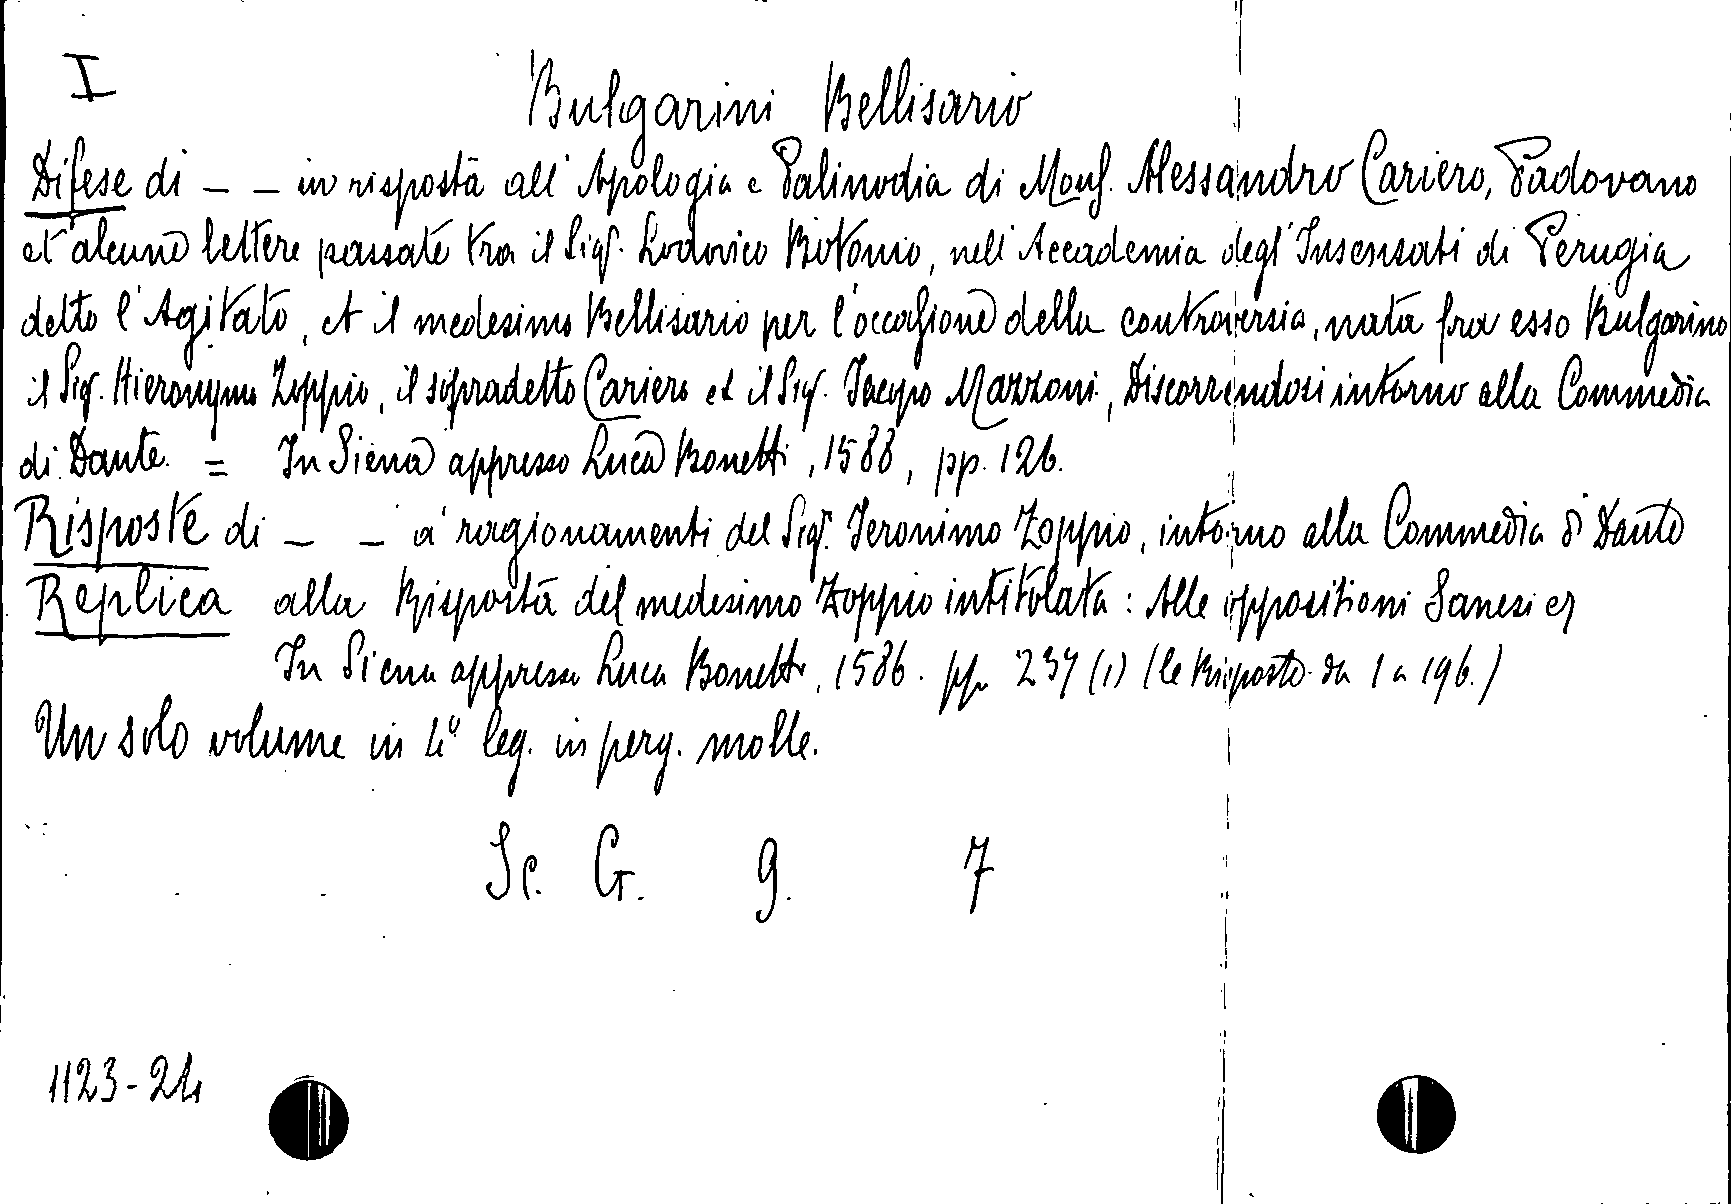 I
Bulgarini Bellisario
Difese di _ _ in risposta all' Apologia e Palinodia di Mons. Alessandro Cariero, Padovano
et alcune lettere passate tra il Sigr. Lodovico Botonio, nell'Accademia degl'Insensati di Perugia
detto l'Agitato, et il medesimo Bellisario per l'occasione della controversia, nata fra esso Bulgarino
il Sigr. Hieronymo Zoppio, il sopradetto Cariero et il Sigr. Jacopo Mazzoni, Discorrendosi intorno alla Commedia
di Dante. = In Siena appresso Luca Bonetti, 1588, pp. 126.
Risposte di _ _ a' ragionamenti del Sigr. Ieronimo Zoppio, intorno alla Commedia di Dante
Replica alla Risposta del medesimo Zoppio intitolata: Alle oppositioni Sanesi
In Siena appresso Luca Bonetti, 1586. pp. 237 (1) (le Risposte da 1 a 196.)
Un solo volume in 4º leg. in perg. molle.
Sc. G. 9. 7
1123-24